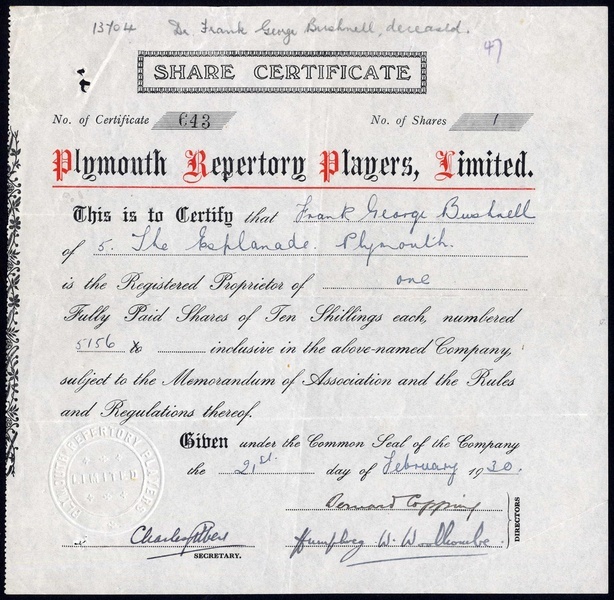 13704 Dr. Frank George Bushnell, deceased.
47
SHARE CERTIFICATE
No. of Certificate 643 No. of Shares 1
Plymouth Repertory Players, Limited.
This is to Certify that Frank George Bushnell
of 5. The Esplanade. Plymouth.
is the Registered Proprietor of one
Fully Paid Shares of Ten Shillings each, numbered
5156 to inclusive in the above-named Company,
subject to the Memorandum of Association and the Rules
and Regulations thereof.
Given under the Common Seal of the Company
the 21st. day of February 1930.
PLYMOUTH REPERTORY PLAYERS
LIMITED
Bernard Copping
DIRECTORS
Charles Humphrey W. Woollcombe.
SECRETARY.